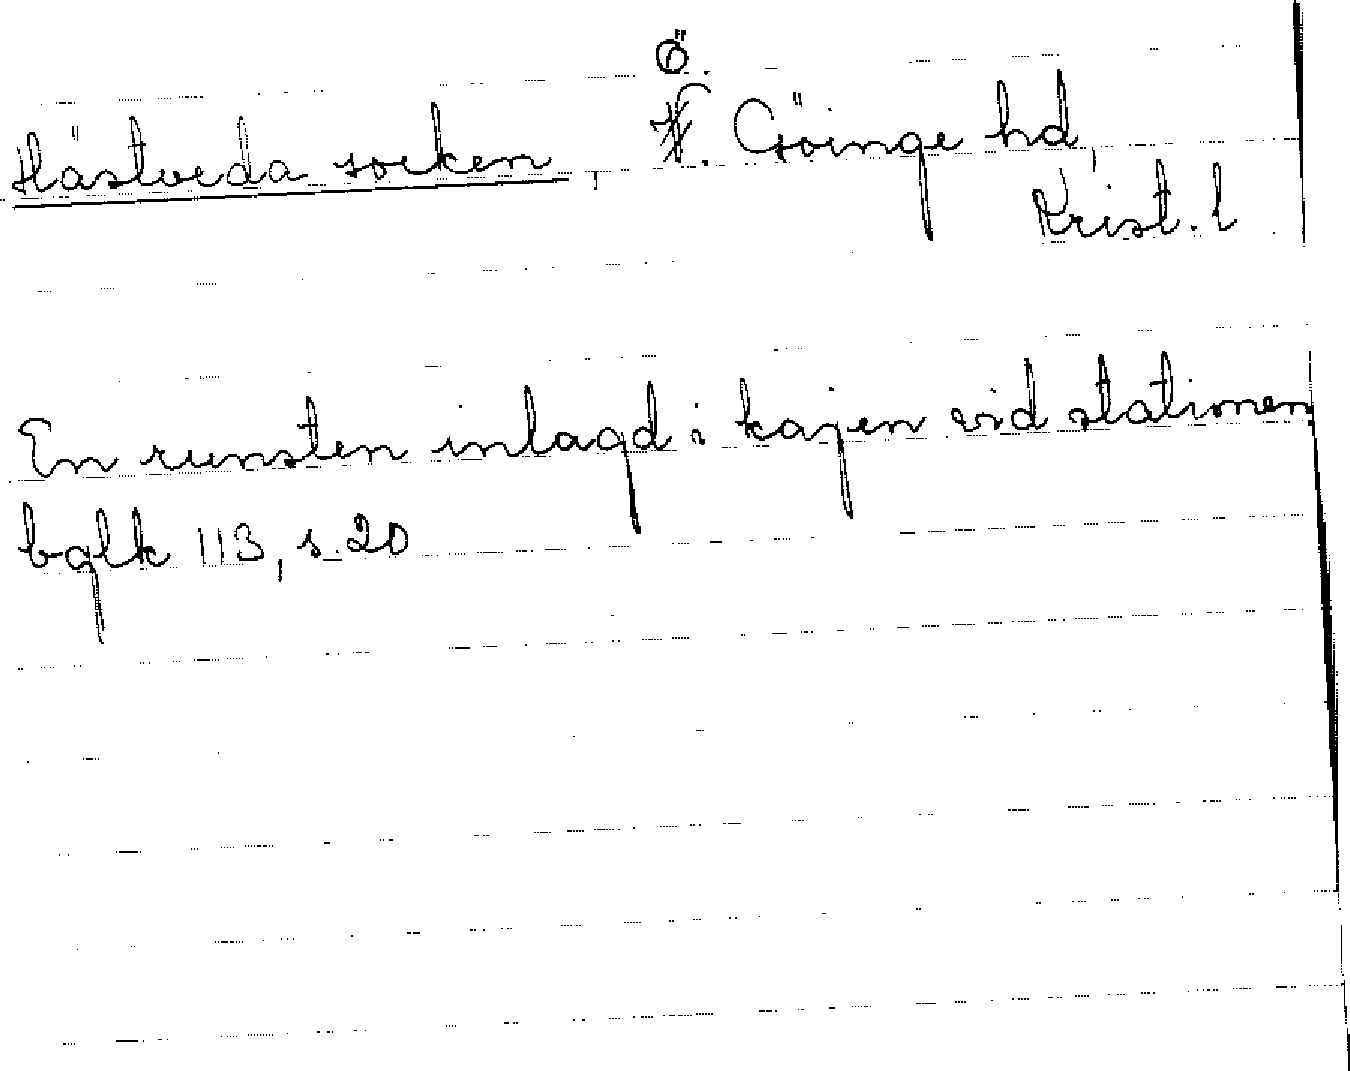 Hästveda socken, Ö. Göinge hd,
Krist. l
En runsten inlagd i kajen vid stationen
bglk 113, s. 20